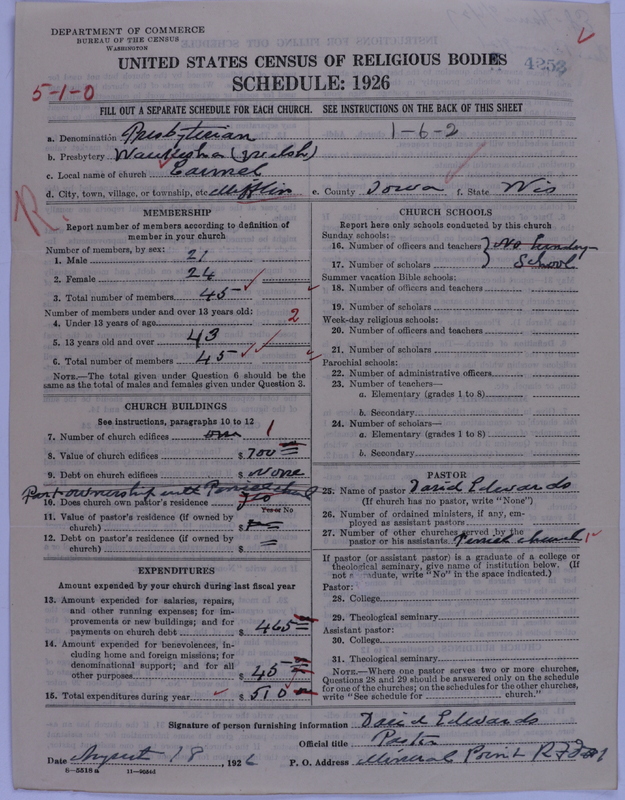 DEPARTMENT OF COMMERCE
BUREAU OF THE CENSUS
WASHINGTON
4253
UNITED STATES CENSUS OF RELIGIOUS BODIES
SCHEDULE: 1926
5-1-0
FILL OUT A SEPARATE SCHEDULE FOR EACH CHURCH. SEE INSTRUCTIONS ON THE BACK OF THIS SHEET
a. Denomination Presbyterian 1-6-2
b. Presbytery (Welsh)
c. Local name of church Carmel
d. City, town, village, or township, etc. Mifflin e. County Iowa f. State Wis
R.
MEMBERSHIP
Report number of members according to definition of member in your church
Number of members, by sex:
1. Male 21
2. Female 24
3. Total number of members 45
Number of members under and over 13 years old:
4. Under 13 years of age 2
5. 13 years old and over 43
6. Total number of members 45
NOTE.—The total given under Question 6 should be the same as the total of males and females given under Question 3.
CHURCH BUILDINGS
See instructions, paragraphs 10 to 12
7. Number of church edifices one 1
8. Value of church edifices $ 700
9. Debt on church edifices $ None
Part ownership with
10. Does church own pastor's residence
Yes or No
11. Value of pastor's residence (if owned by church) $
12. Debt on pastor's residence (if owned by church) $
EXPENDITURES
Amount expended by your church during last fiscal year
13. Amount expended for salaries, repairs, and other running expenses; for improvements or new buildings; and for payments on church debt $ 465
14. Amount expended for benevolences, including home and foreign missions; for denominational support; and for all other purposes $ 45
15. Total expenditures during year $ 510
CHURCH SCHOOLS
Report here only schools conducted by this church
Sunday schools:
16. Number of officers and teachers No Sunday
17. Number of scholars School
Summer vacation Bible schools:
18. Number of officers and teachers
19. Number of scholars
Week-day religious schools:
20. Number of officers and teachers
21. Number of scholars
Parochial schools:
22. Number of administrative officers
23. Number of teachers—
a. Elementary (grades 1 to 8)
b. Secondary
24. Number of scholars—
a. Elementary (grades 1 to 8)
b. Secondary
PASTOR
25. Name of pastor David Edwards
(If church has no pastor, write "None")
26. Number of ordained ministers, if any, employed as assistant pastors
27. Number of other churches served by the pastor or his assistants church 1
If pastor (or assistant pastor) is a graduate of a college or theological seminary, give name of institution below. (If not a graduate, write "No" in the space indicated.)
Pastor:
28. College
29. Theological seminary
Assistant pastor:
30. College
31. Theological seminary
NOTE.—Where one pastor serves two or more churches, Questions 28 and 29 should be answered only on the schedule for one of the churches; on the schedules for the other churches, write "See schedule for church."
Signature of person furnishing information David Edwards
Official title Pastor
Date August 18, 1926 P. O. Address Mineral Point R F D #1
8-5518 a